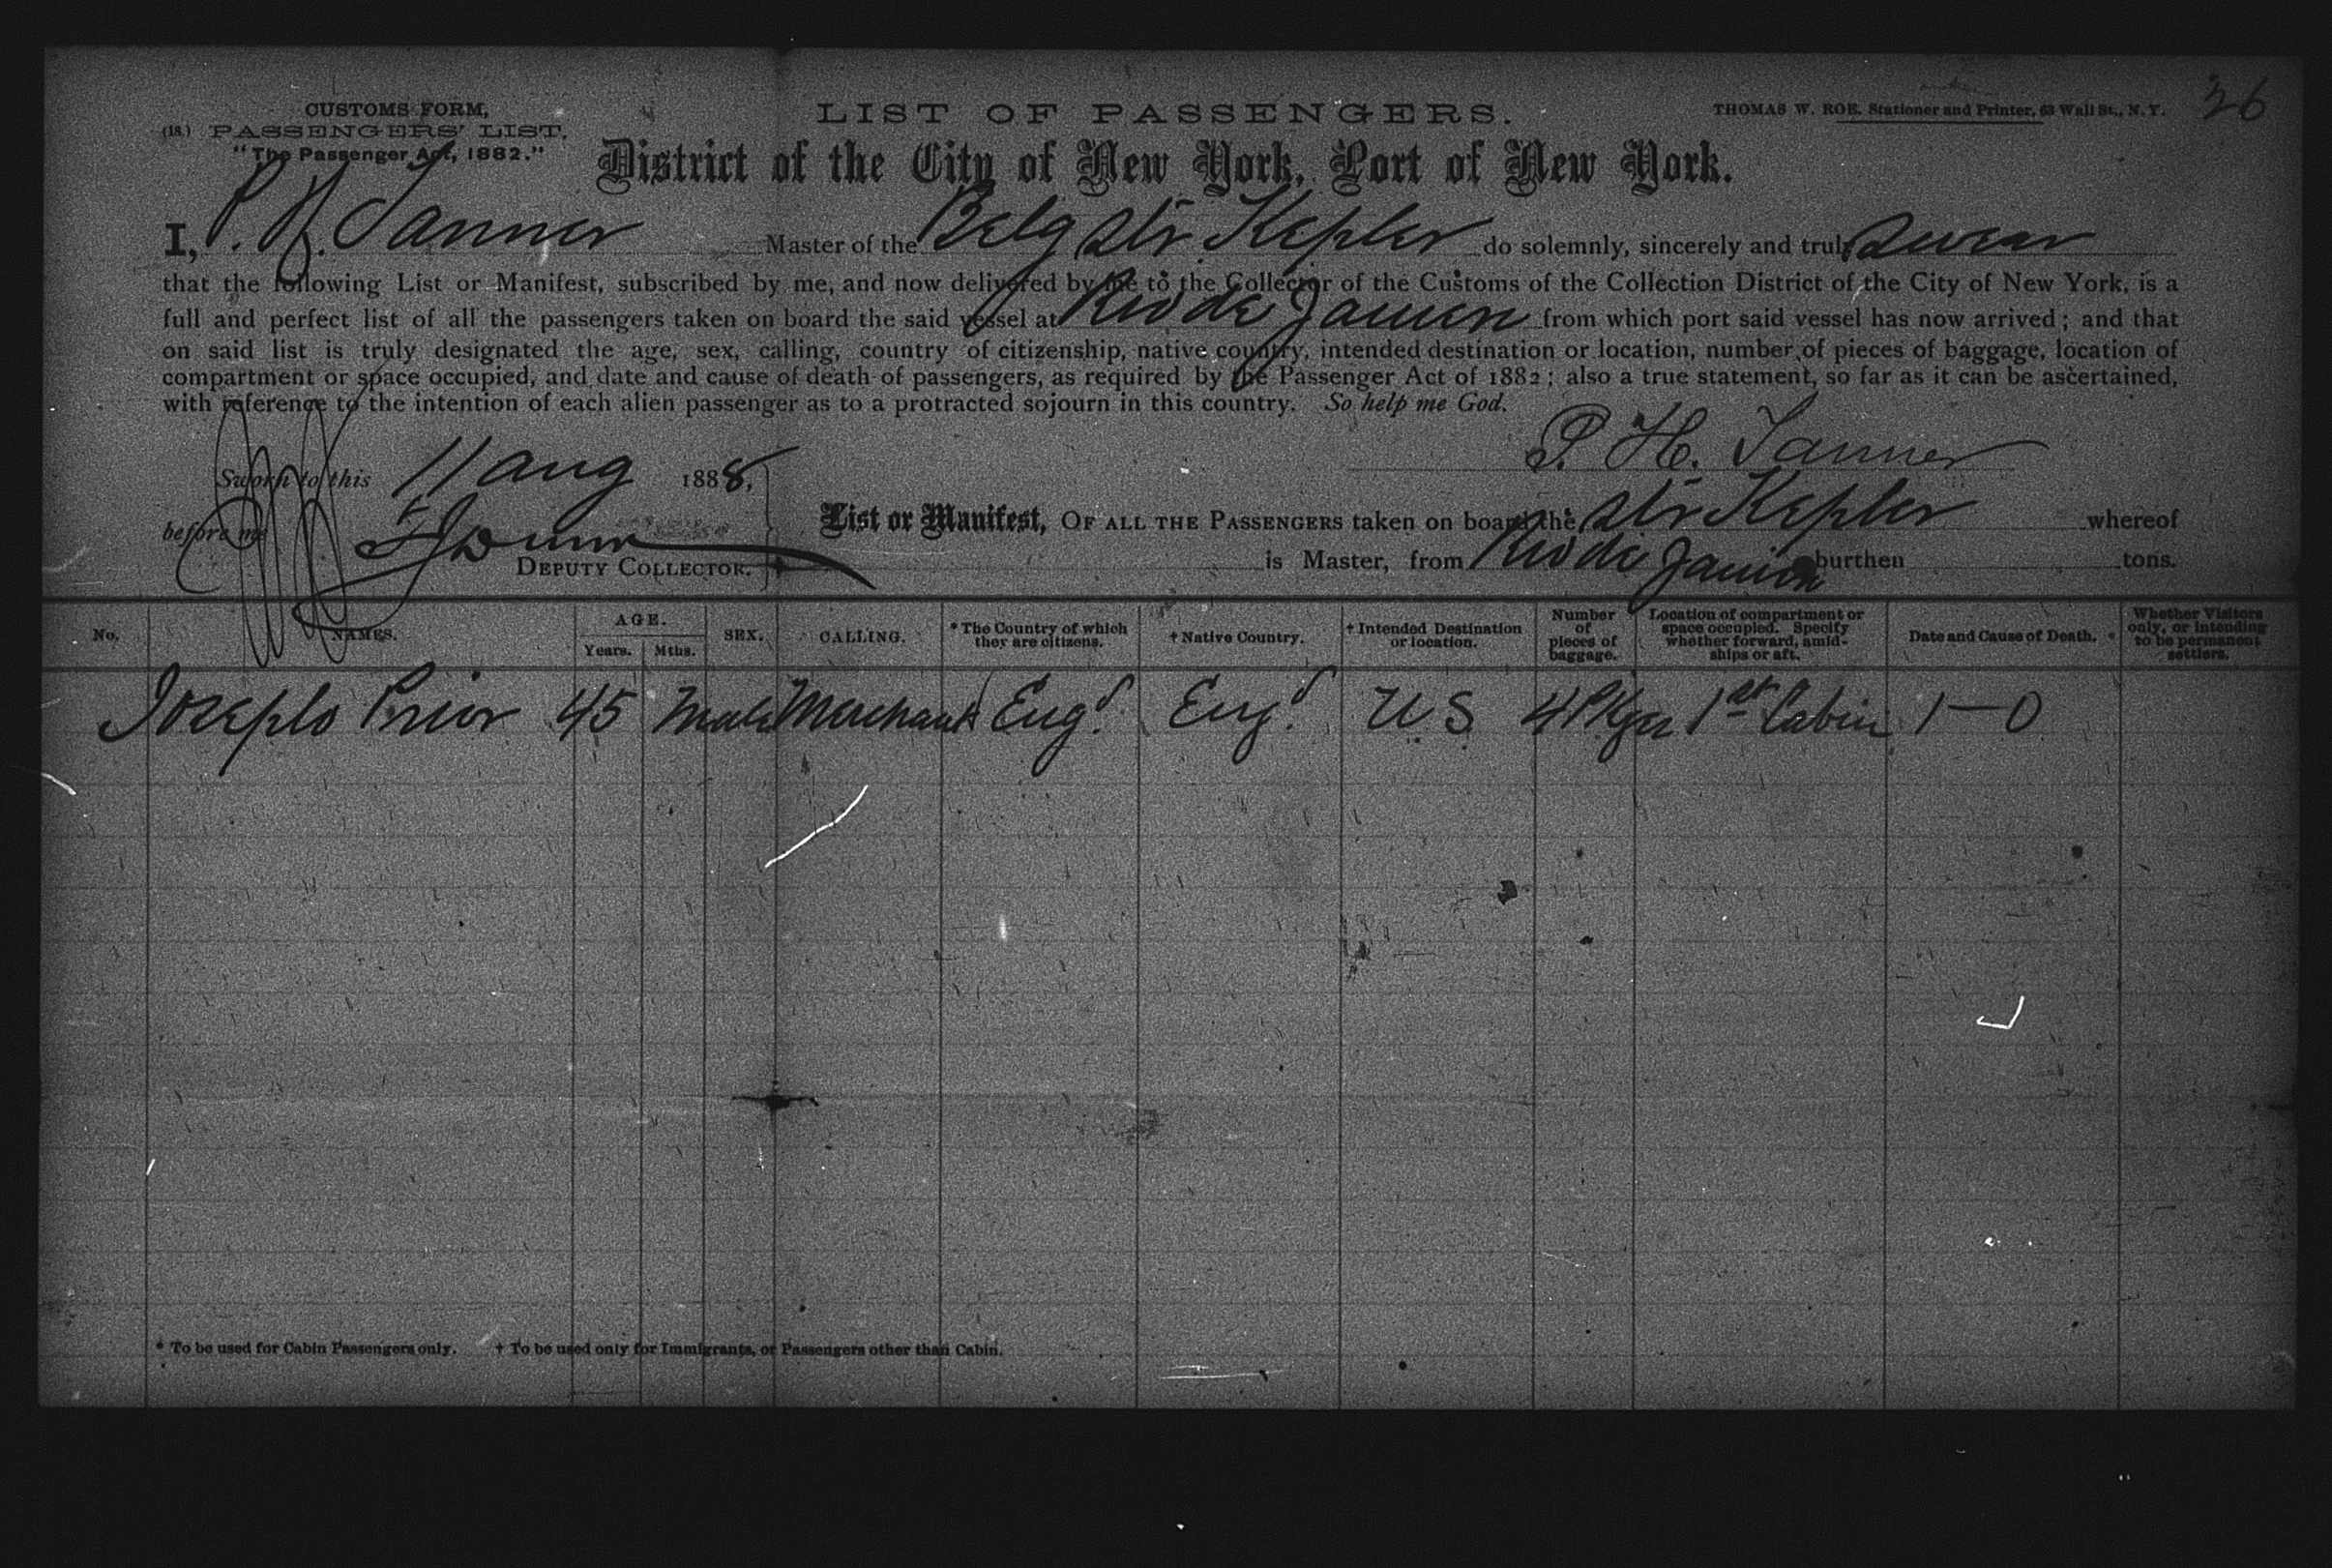 CUSTOMS FORM,
(18.) PASSENGERS' LIST.
"The Passenger Act, 1882."
LIST OF PASSENGERS.
THOMAS W. ROE, Stationer and Printer, 63 Wall St., N. Y.
26
District of the City of New York, Port of New York.
I, P. H. Tanner Master of the Belg Str Kepler do solemnly, sincerely and truly swear
that the following List or Manifest, subscribed by me, and now delivered by me to the Collector of the Customs of the Collection District of the City of New York, is a
full and perfect list of all the passengers taken on board the said vessel at Rio de Janeiro from which port said vessel has now arrived; and that
on said list is truly designated the age, sex, calling, country of citizenship, native country, intended destination or location, number of pieces of baggage, location of
compartment or space occupied, and date and cause of death of passengers, as required by the Passenger Act of 1882; also a true statement, so far as it can be ascertained,
with reference to the intention of each alien passenger as to a protracted sojourn in this country. So help me God.
P. H. Tanner
Sworn to this 11 aug 1888,
before me
DEPUTY COLLECTOR.
List or Manifest, OF ALL THE PASSENGERS taken on board the Str Kepler whereof
is Master, from Rio de Janeiro burthen tons.
No. NAMES. AGE. Years. Mths. SEX. CALLING. * The Country of which they are citizens. † Native Country. † Intended Destination or location. Number of pieces of baggage. Location of compartment or space occupied. Specify whether forward, amidships or aft. Date and Cause of Death. Whether Visitors only, or intending to be permanent settlers.
Joseph Prior 45 Male Merchant Engd. Engd. U.S 4 Pkges 1st Cabin 1—0
* To be used for Cabin Passengers only. † To be used only for Immigrants, or Passengers other than Cabin.